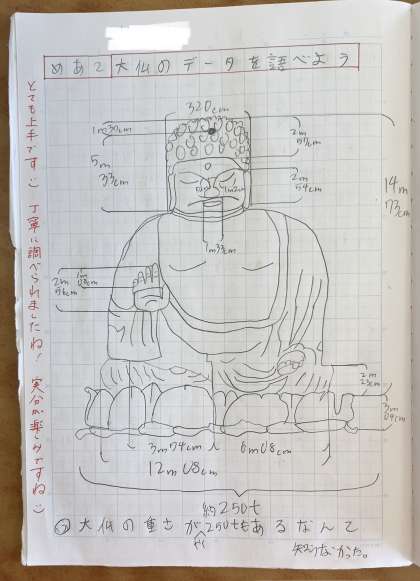 めあて 大仏のデータを調べよう
とても上手です。:) 丁寧に調べられましたね! 実分が楽しみですね:)
320cm
1m30cm
2m
5m
33cm
2m
54cm
14m
73cm
1m33cm
2m
56cm
1m
08cm
2m
3m
04cm
3m74cm
6m08cm
12m08cm
約250t
大仏の重さが約250tもあるなんて
知らなかった。